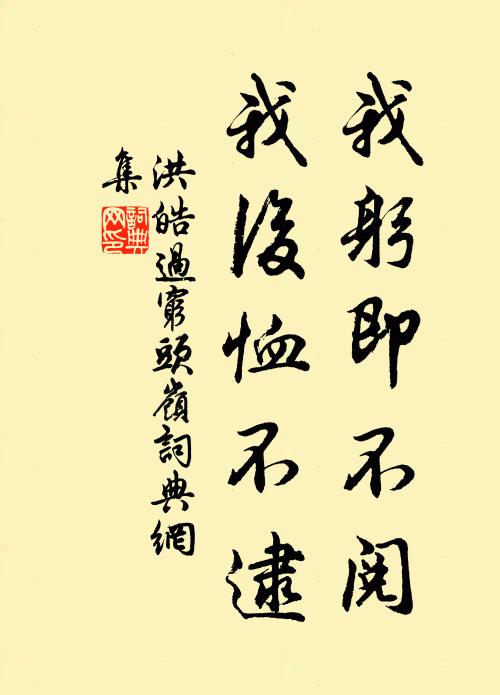 我躬即不閱
我後恤不逮
洪皓過窮頭嶺詞典網
集
詞典
网印